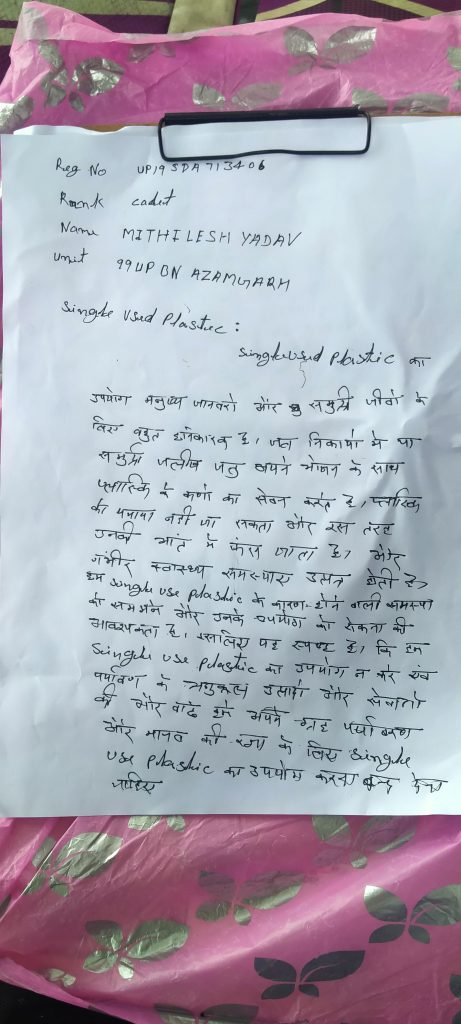 Reg No UP19SDA713406
Rank cadet
Name MITHILESH YADAV
Unit 99UP BN AZAMGARH
Single Used Plastic :
Single used Plastic का
उपयोग मनुष्य जानवरो और समुद्री जीवों के
लिए बहुत हानिकारक है, जल निकायो मे या
समुद्री जलीय जंतु अपने भोजन के साथ
प्लास्टिक के कणो का सेवन करते है, प्लास्टिक
को पचाया नही जा सकता और इस तरह
उनकी आंत मे फंस जाता है, और
गंभीर स्वास्थ्य समस्याए उत्पन्न होती है,
हम single use plastic के कारण होने वाली समस्या
को समझने और उनके उपयोग को रोकना की
आवश्यकता है, इसलिए यह स्पष्ट है, कि हम
Single use plastic का उपयोग न करे एवं
पर्यावरण के अनुकूल उत्पादो और सेवाओ
की ओर बढे हमे अपने ग्रह पर्यावरण
और मानव की रक्षा के लिए single
use plastic का उपयोग करना बन्द देना
चाहिए